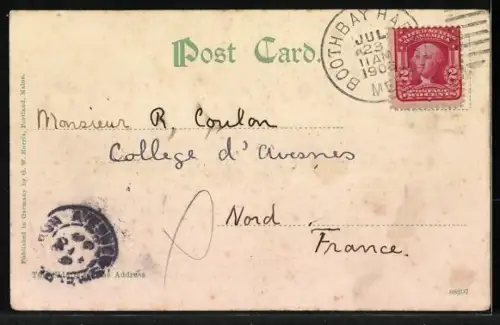 Post Card.
BOOTHBAY HAR
JUL
23
11AM
190
ME
UNITED STATES
2 2
TWO CENTS
Monsieur R, Coulon
College d'Avesnes
Nord
France.
Published in Germany by G. W. Morris, Portland, Maine.
Address